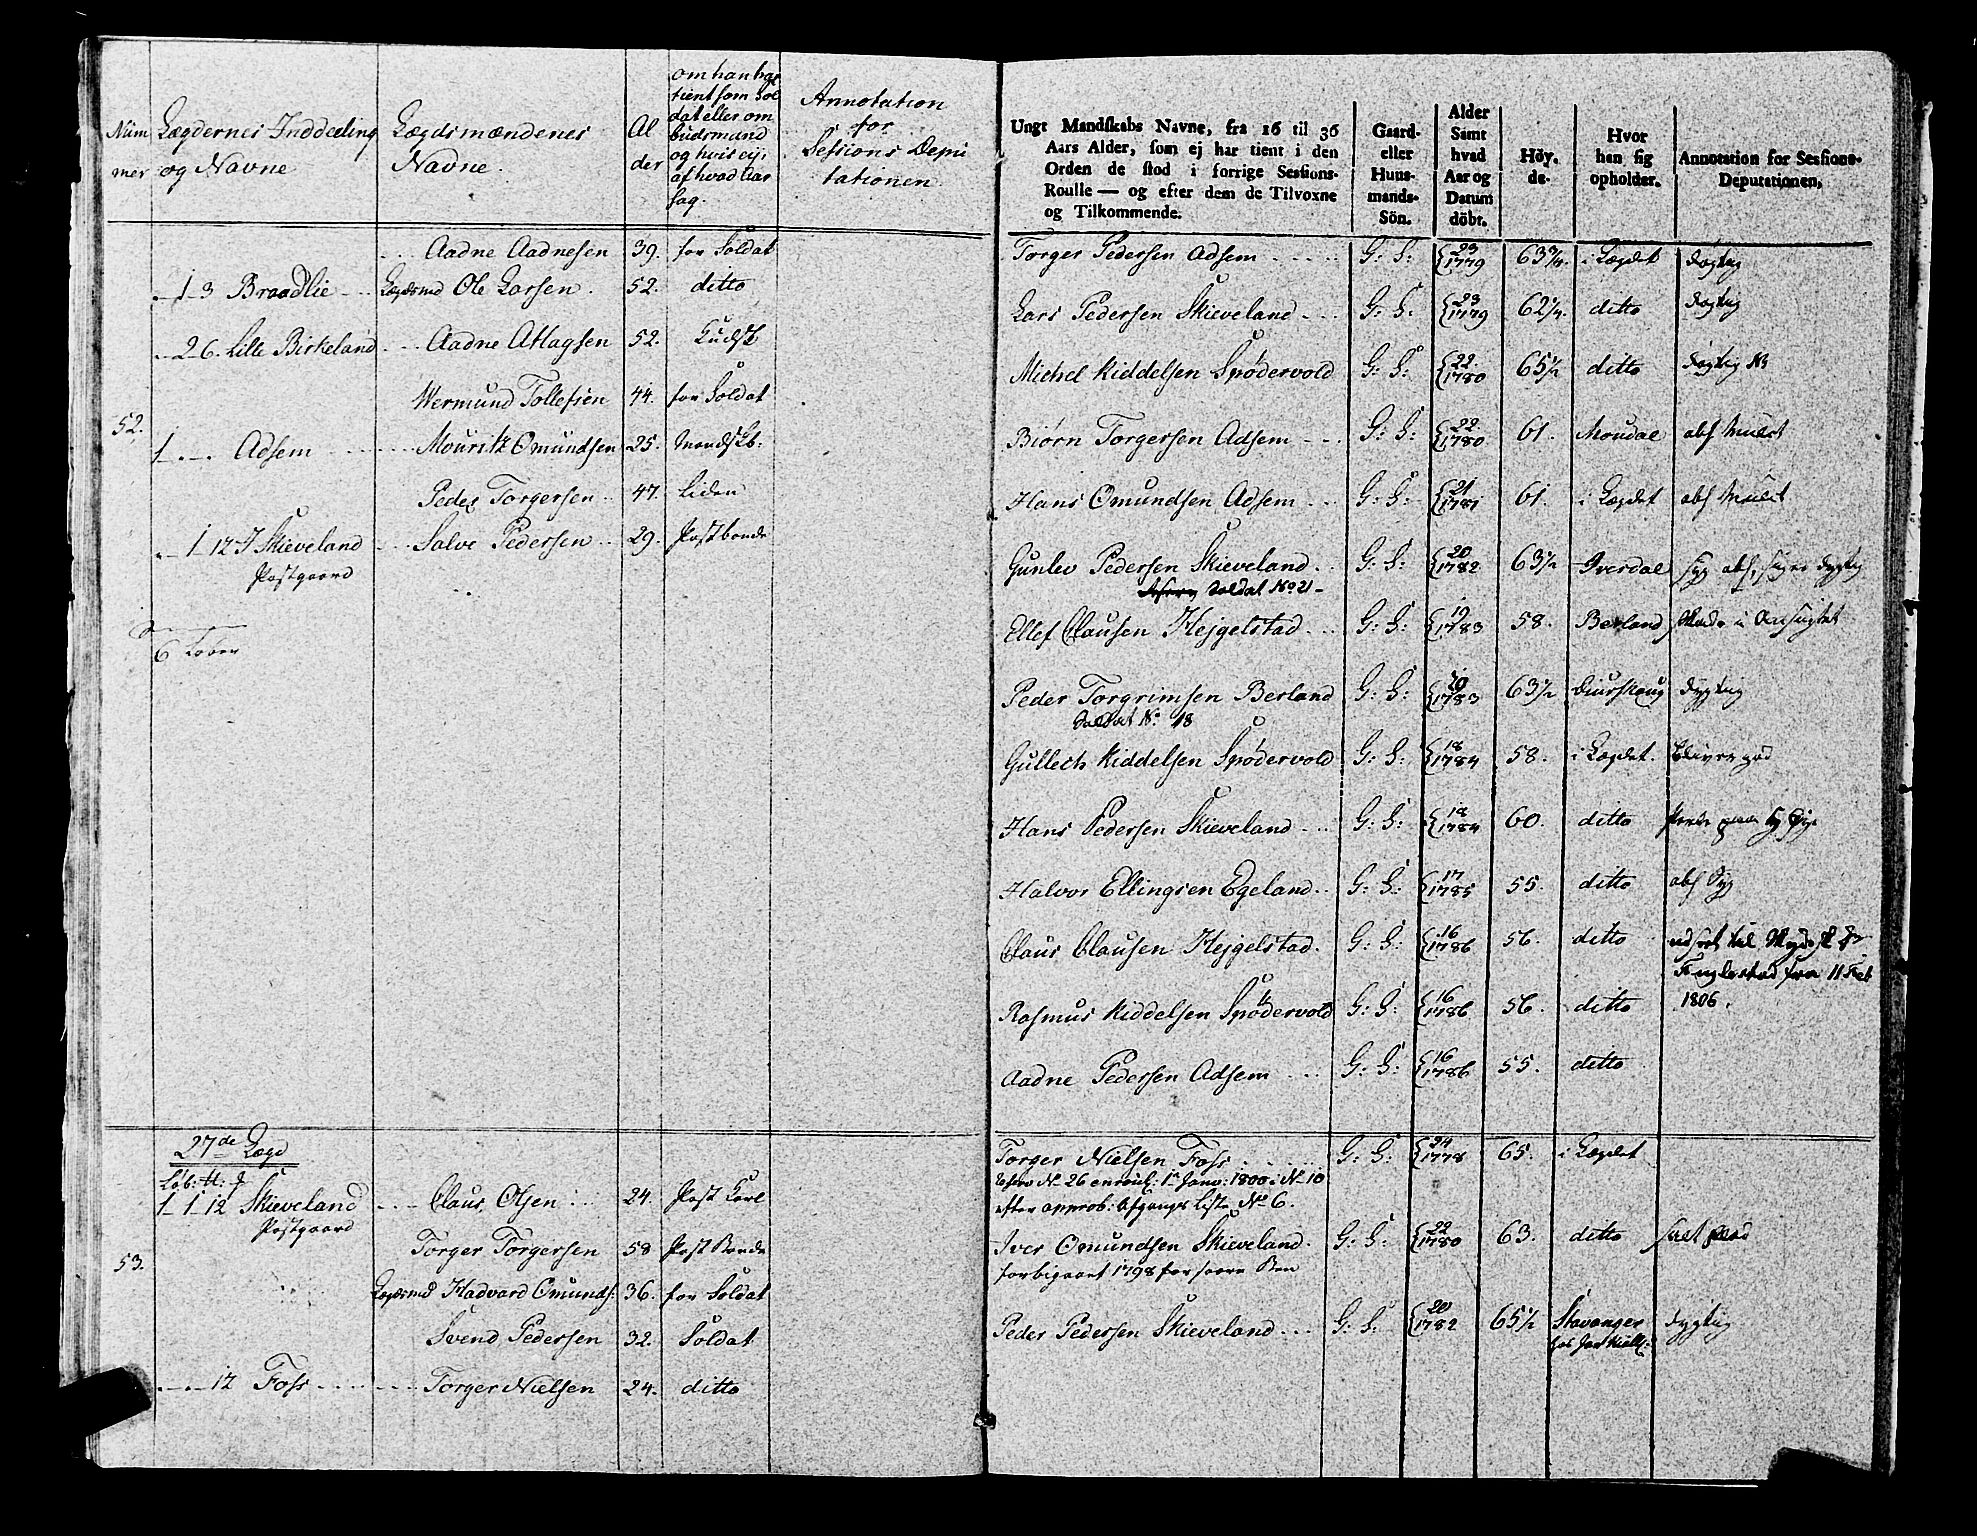 Num
mer
Lægdernes Inddeeling
og Navne
Lægdsmændenes
Navne.
Al
der
om han har
tient som Sol
dat eller om
budsmand
og hvis ej,
af hvad Aar
sag.
Annotation
for
Sessions Depu
tationen
Ungt Mandskabs Navne, fra 16 til 36
Aars Alder, som ej har tient i den
Orden de stod i forrige Sessions-
Roulle — og efter dem de Tilvoxne
og Tilkommende.
Gaard-
eller
Huus-
mands-
Sön.
Alder
Samt
hvad
Aar og
Datum
döbt.
Höy-
de.
Hvor
han sig
opholder.
Annotation for Sessions-
Deputationen,
Aadne Aadnesen 39. for Soldat
1 3 Braadlie Lægdsmd Ole Larsen. 52. ditto
2 6. Lille Birkeland Aadne Atlagsen 52.
Wermund Tollefsen 44. for Soldat
52.
1 Adsem Mourits Omundsen 25.
Peder Torgersen 47. Liden
1 12 Skieveland Salve Pedersen 29. Postbonde
Postgaard
6 Løber
27de Lægd
1 1 12 Skieveland Claus Olsen 24. Post Karl
Postgaard
Torger Torgersen 58 Post Bonde
53.
Lægdsmd Hadvard Omunds: 36. for Soldat
Svend Pedersen 32. Soldat
12 Foss Torger Nielsen 24. ditto
Torger Pedersen Adsem G: S: 23 1779 63¾. i Lægdet dygtig
Lars Pedersen Skieveland G: S: 23 1779 62¼. ditto dygtig
Michel Kiddelsen Spödervold G: S: 22 1780 65½ ditto dygtig
Biørn Torgersen Adsem G: S: 22 1780 61. Moudal abs
Hans Omundsen Adsem G: S: 21 1781 61. i Lægdet abs
Gunlev Pedersen Skieveland G: S: 20 1782 63½ Sverdal syg abs, siger dygtig
Soldat No 21
Ellef Clausen Hejgelstad G: S: 19 1783 58. Berland i Ansigtet
Peder Torgrimsen Berland G: S: 20 1783 63½ Diurskoug dygtig
Soldat No 18
Gullech Kiddelsen Spödervold G: S: 18 1784 58. i Lægdet.
Hans Pedersen Skieveland G: S: 18 1784 60. ditto
Halvor Ellingsen Egeland G: S: 17 1785 55. ditto abs Syg
Claus Clausen Hejgelstad. G: S: 16 1786 56. ditto udsat til
fra 11 Feb
1806.
Rasmus Kiddelsen Spödervold G: S: 16 1786 56. ditto
Aadne Pedersen Adsem G: S: 16 1786 55. ditto
Torger Nielsen Foss G: S: 24 1778 65. i Lægdet
No 26 enroul: 1 Janv: 1800 i No 10
efter approb: Afgangs Liste No 6.
Iver Omundsen Skieveland. G: S: 22 1780 63. ditto
forbigaaet 1798 for saare Ben
Peder Pedersen Skieveland G: S: 20 1782 65½ Stavanger dygtig